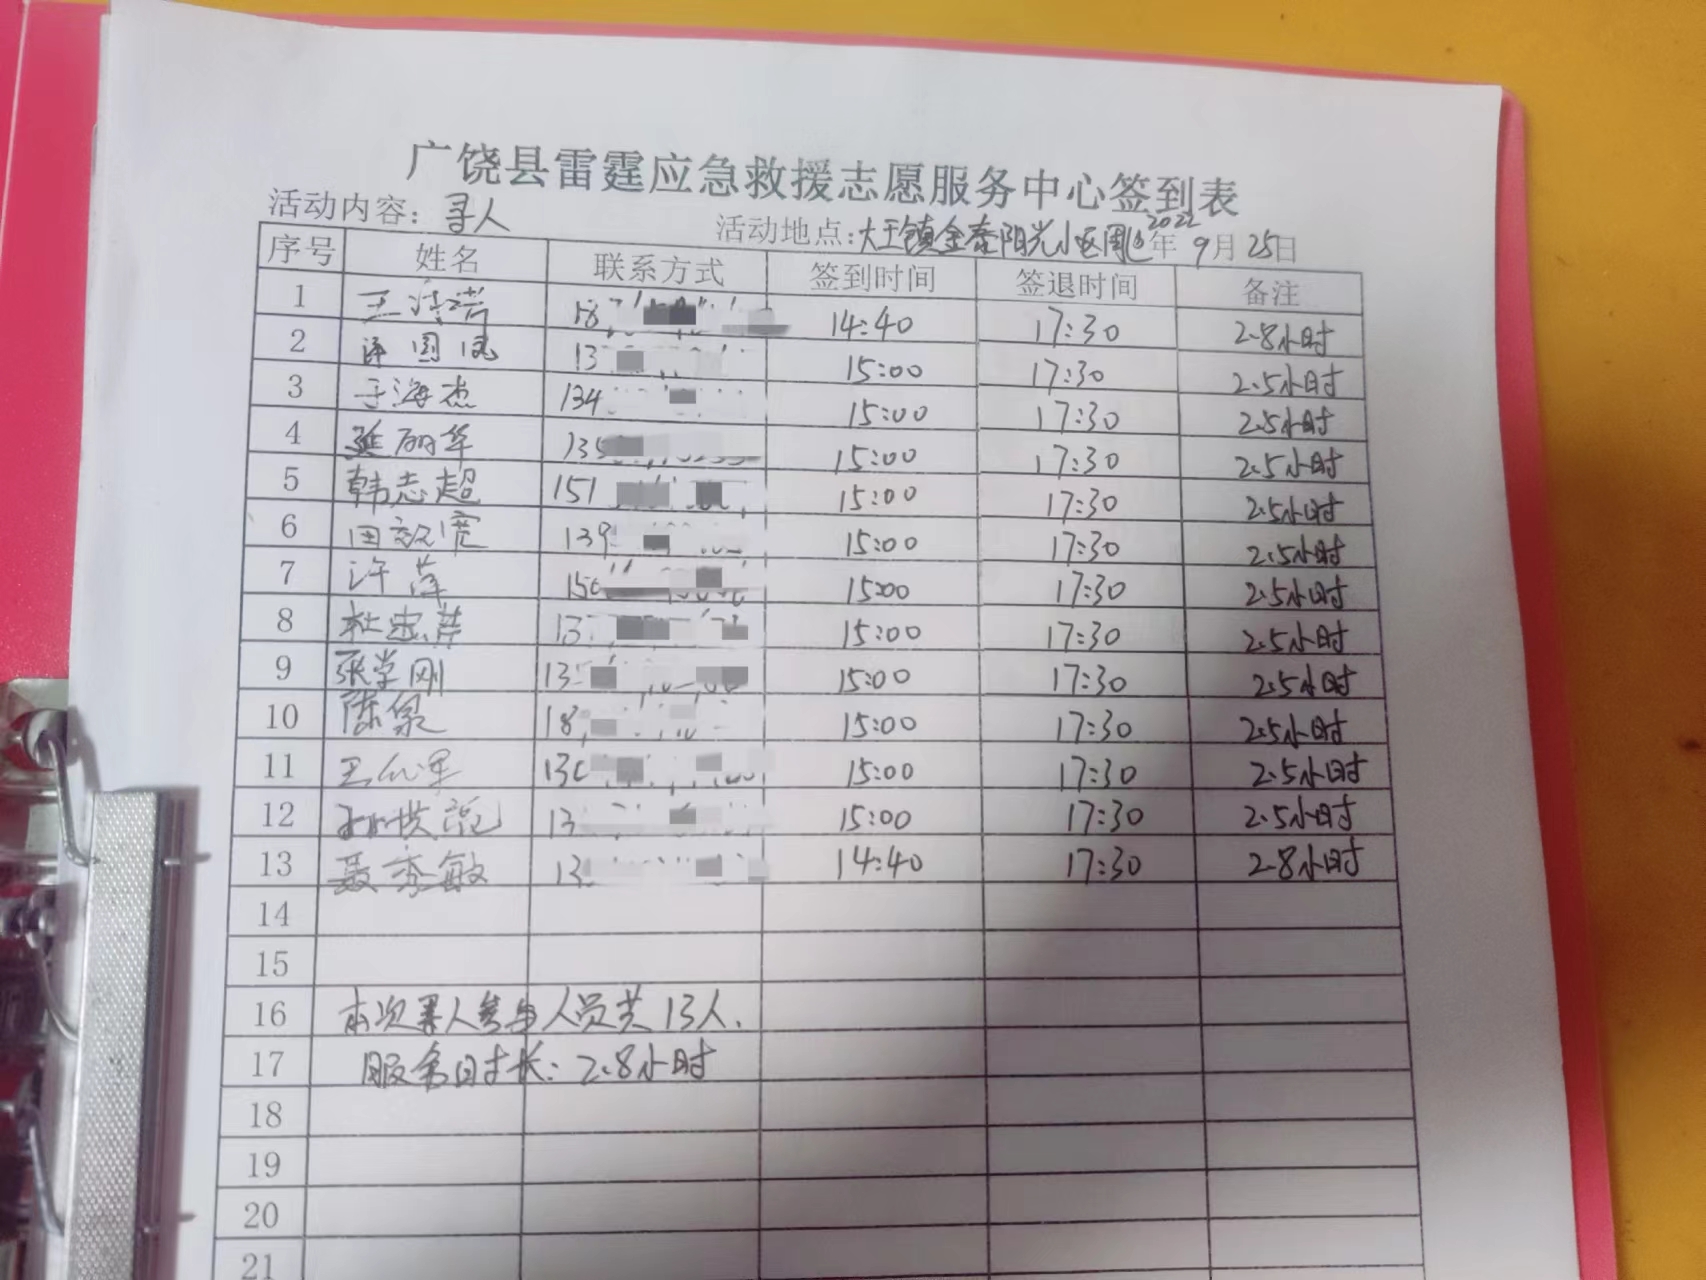 广饶县雷霆应急救援志愿服务中心签到表
活动内容：寻人 活动地点：大王镇金泰阳光小区周边 2022年9月25日
序号 姓名 联系方式 签到时间 签退时间 备注
1 王 18 14:40 17:30 2.8小时
2 国凤 13 15:00 17:30 2.5小时
3 于海杰 134 15:00 17:30 2.5小时
4 延丽华 135 15:00 17:30 2.5小时
5 韩志超 151 15:00 17:30 2.5小时
6 田 宽 139 15:00 17:30 2.5小时
7 许萍 150 15:00 17:30 2.5小时
8 杜忠芹 13 15:00 17:30 2.5小时
9 张学刚 13 15:00 17:30 2.5小时
10 陈泉 18 15:00 17:30 2.5小时
11 王 军 13 15:00 17:30 2.5小时
12 孙洪 13 15:00 17:30 2.5小时
13 聂秀敏 13 14:40 17:30 2.8小时
14
15
16 本次寻人参与人员共13人.
17 服务时长：2.8小时
18
19
20
21